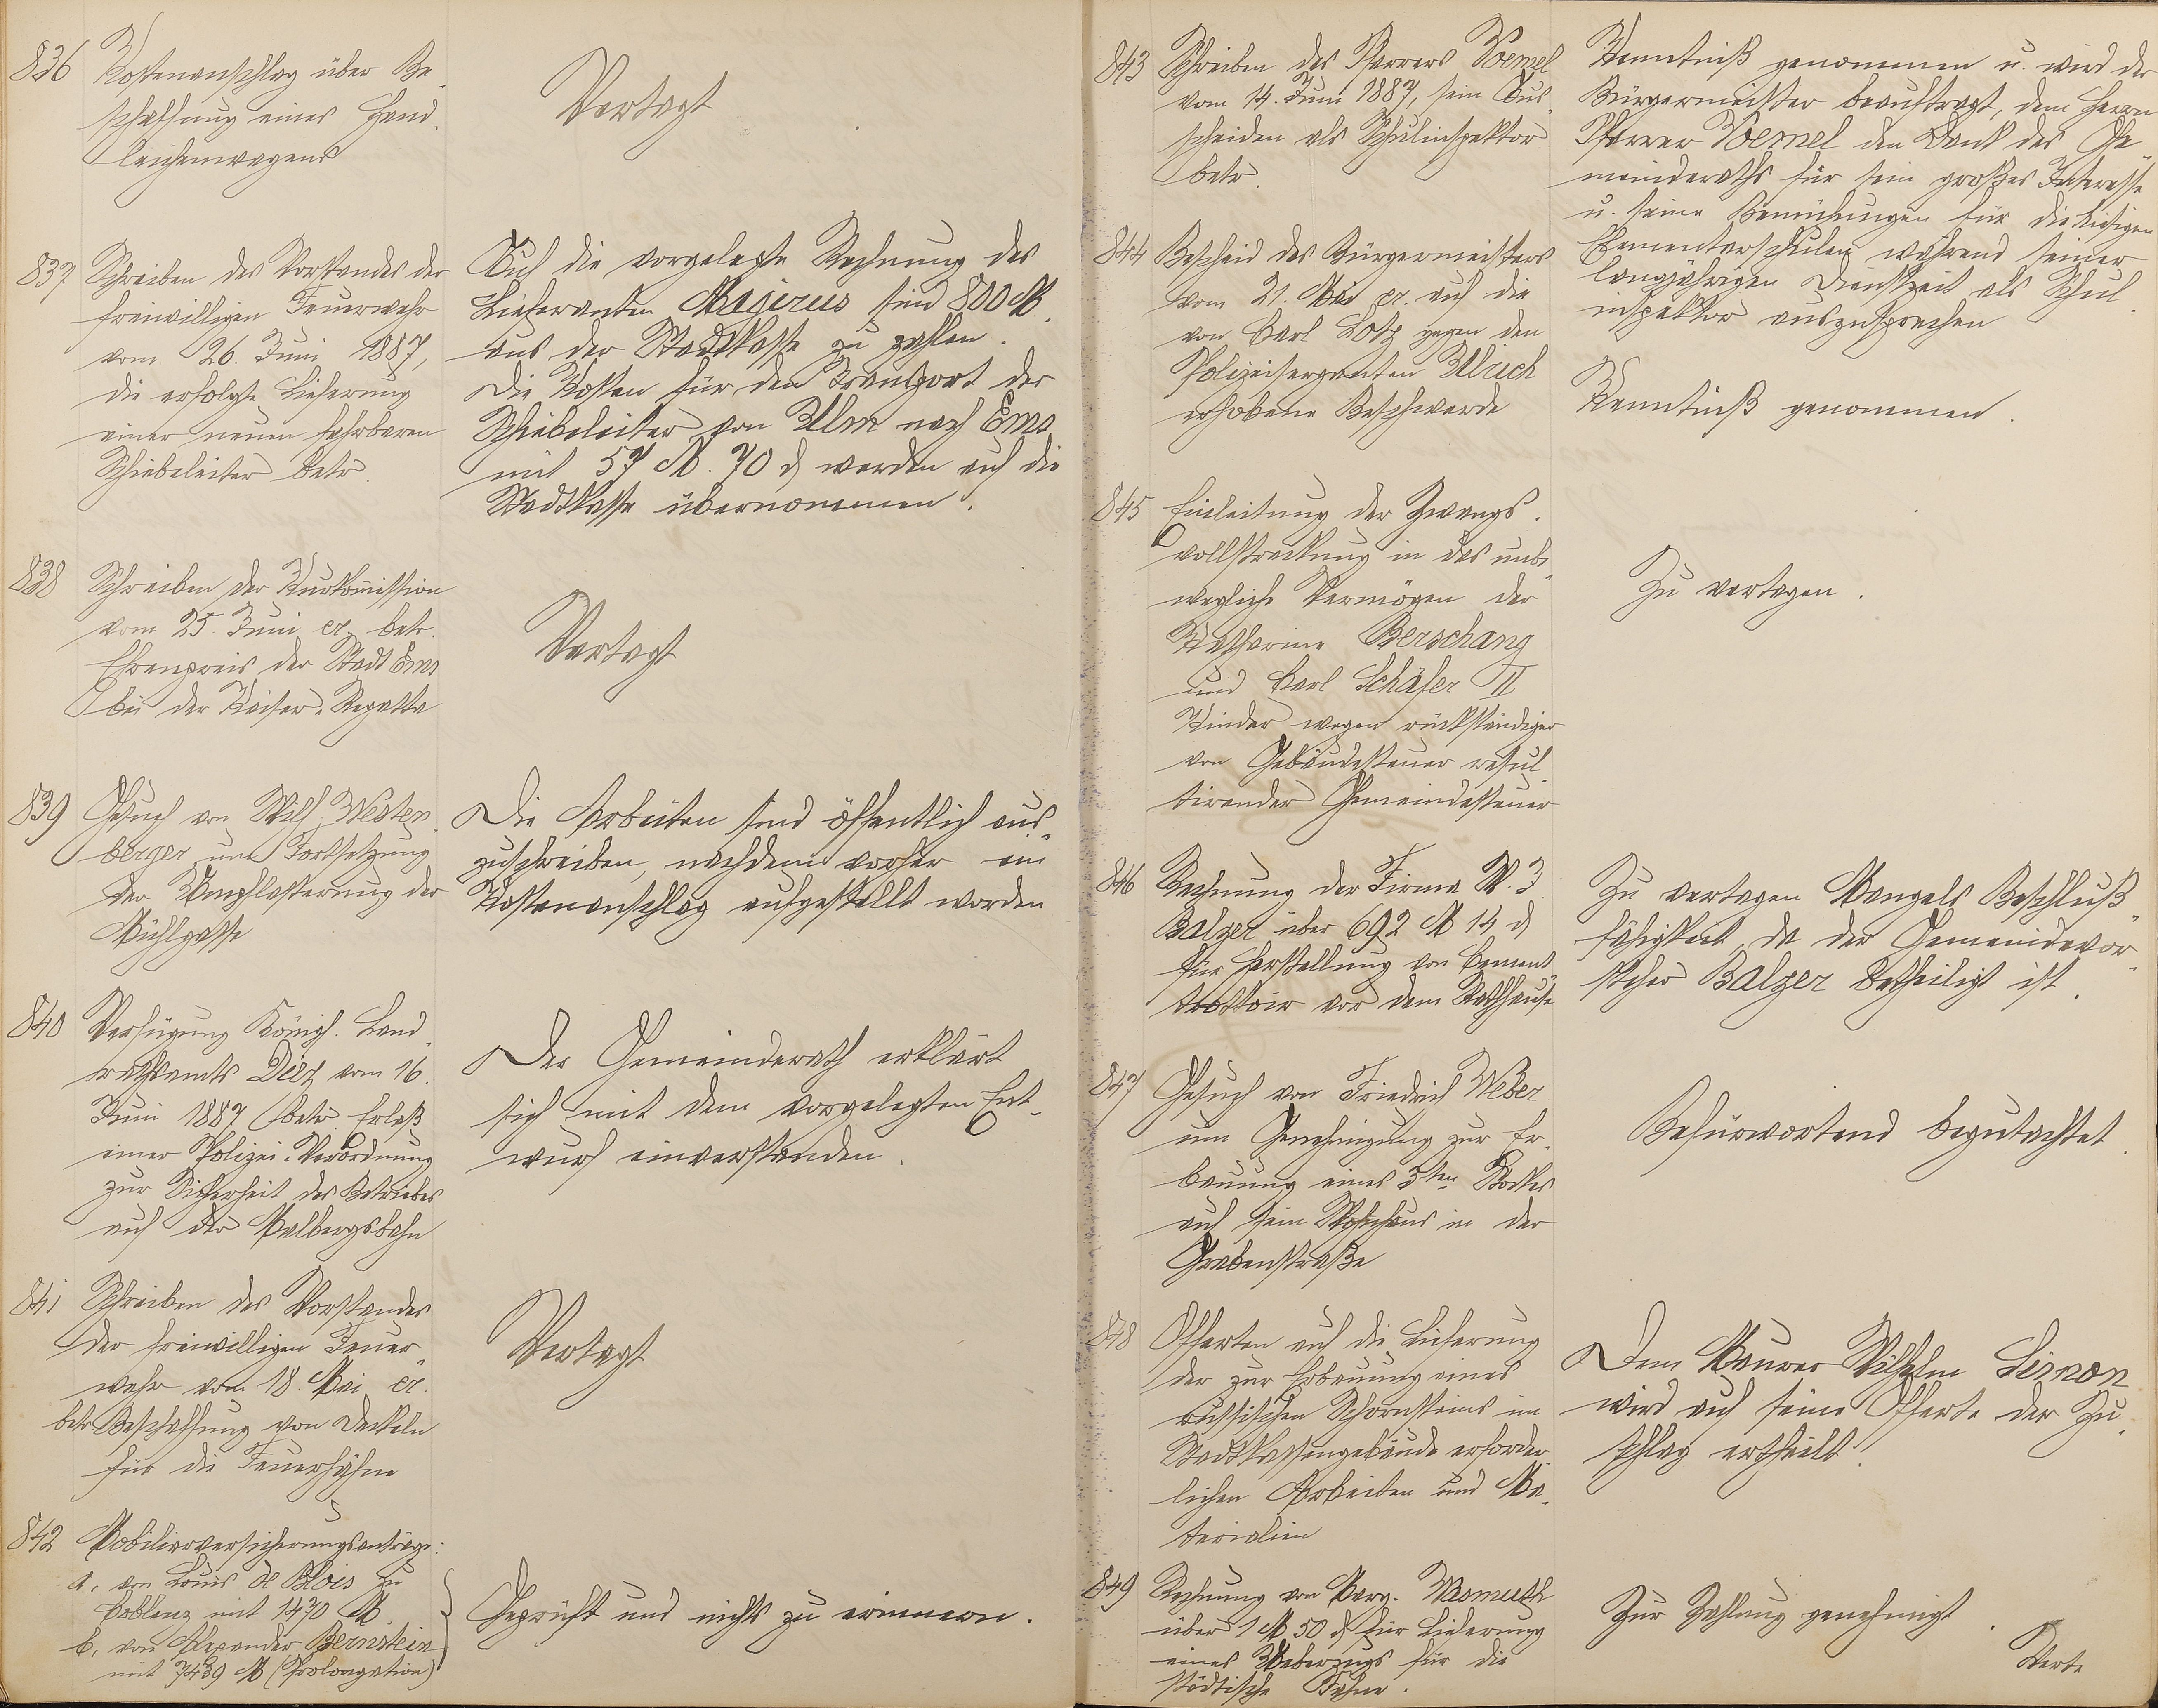 836 Kostenanschlag über Be-
schaffung eines Hand-
leichenwagens
Vertagt
837 Schreiben des Vorstandes der
freiwilligen Feuerwehr
vom 26. Juni 1887,
die erfolgte Lieferung
einer neuen fahrbaren
Schiebeleiter betr.
Auf die vorgelegte Rechnung des
Lieferanten Magirus sind 800 M.
aus der Stadtkasse zu zahlen.
Die Kosten für den Transport der
Schiebeleiter von Ulm nach Ems
mit 57 M. 70 d werden auf die
Stadtkasse übernommen.
838 Schreiben der Kurkommission
vom 25. Juni cr. betr.
Ehrenpreis der Stadt Ems
bei der Kaiser-Regatta
Vertagt
839 Gesuch von Wilh. Westen-
berger um Fortsetzung
der Umpflasterung der
Mühlgasse
Die Arbeiten sind öffentlich aus-
zuschreiben, nachdem vorher ein
Kostenanschlag aufgestellt worden
840 Verfügung Königl. Land-
rathsamts Diez vom 16.
Juni 1887 betr. Erlaß
einer Polizei-Verordnung
zur Sicherheit des Betriebes
auf der Malbergsbahn
Der Gemeinderath erklärt
sich mit dem vorgelegten Ent-
wurf einverstanden.
841 Schreiben des Vorstandes
der freiwilligen Feuer-
wehr vom 18. Mai cr.
betr. Beschaffung von Deckeln
für die Feuerhähne
Vertagt
842 Mobiliarversicherungsanträge:
a, von Louis de Blois zu
Coblenz mit 1430 M.
b, von Alexander Bernstein
mit 7439 M (Prolongation)
Geprüft und nichts zu erinnern.
843 Schreiben des Pfarrers Voemel
vom 14. Juni 1887, sein Aus-
scheiden als Schulinspektor
betr.
Kenntniß genommen u. wird der
Bürgermeister beauftragt, dem Herrn
Pfarrer Voemel den Dank des Ge-
meinderaths für sein großes Interesse
u. seine Bemühungen für die hiesigen
Elementarschulen während seiner
langjährigen Dienstzeit als Schul-
inspektor auszusprechen
844 Bescheid des Bürgermeisters
vom 21. Mai cr. auf die
von Carl Lotz gegen den
Polizeisergenten Ulrich
erhobene Beschwerde
Kenntniß genommen.
845 Einleitung der Zwangs-
vollstreckung in das unbe-
wegliche Vermögen der
Katharine Berschang
und Carl Schäfer II
Kinder wegen rückständiger
von Gebäudesteuer resul-
tirender Gemeindesteuer
Zu vertagen.
846 Rechnung der Firma W. J.
Balzer über 692 M 14 d
für Herstellung von Cement-
trottoir vor dem Rathhause
Zu vertagen Mangels Beschluß-
fähigkeit, da der Gemeindevor-
steher Balzer betheiligt ist.
847 Gesuch von Friedrich Weber
um Genehmigung zur Er-
bauung eines 3ten Stockes
auf sein Wohnhaus in der
Grabenstraße
Befürwortend begutachtet.
848 Offerten auf die Lieferung
der zur Erbauung eines
russischen Schornsteins im
Stadtkassengebäude erforder-
lichen Arbeiten und Ma-
terialien
Dem Maurer Wilhelm Linnon
wird auf seine Offerte der Zu-
schlag ertheilt.
849 Rechnung von Marg. Wermuth
über 1 M 50 d für Lieferung
eines Ueberzugs für die
städtische Fahne.
Zur Zahlung genehmigt.